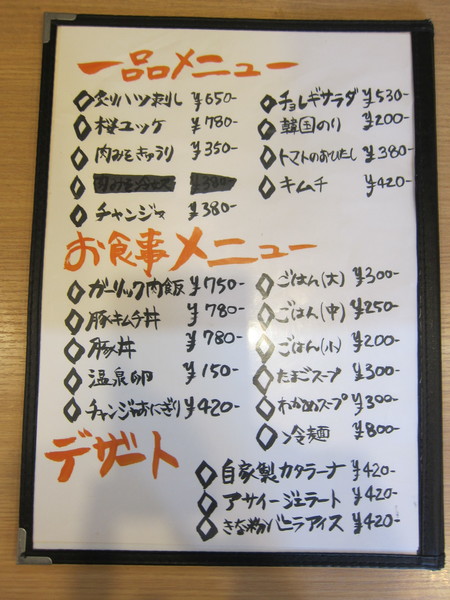 一品メニュー
◇炙りハツ刺し ¥650-
◇桜ユッケ ¥780-
◇肉みそきゅうり ¥350-
◇チャンジャ ¥380-
◇チョレギサラダ ¥530-
◇韓国のり ¥200-
◇トマトのおひたし ¥380-
◇キムチ ¥420-
お食事メニュー
◇ガーリック肉飯 ¥750-
◇豚キムチ丼 ¥780-
◇豚丼 ¥780-
◇温泉卵 ¥150-
◇チャンジャおにぎり ¥420-
◇ごはん(大) ¥300-
◇ごはん(中) ¥250-
◇ごはん(小) ¥200-
◇たまごスープ ¥300-
◇わかめスープ ¥300-
◇冷麺 ¥800-
デザート
◇自家製カタラーナ ¥420-
◇アサイージェラート ¥420-
◇きな粉バニラアイス ¥420-